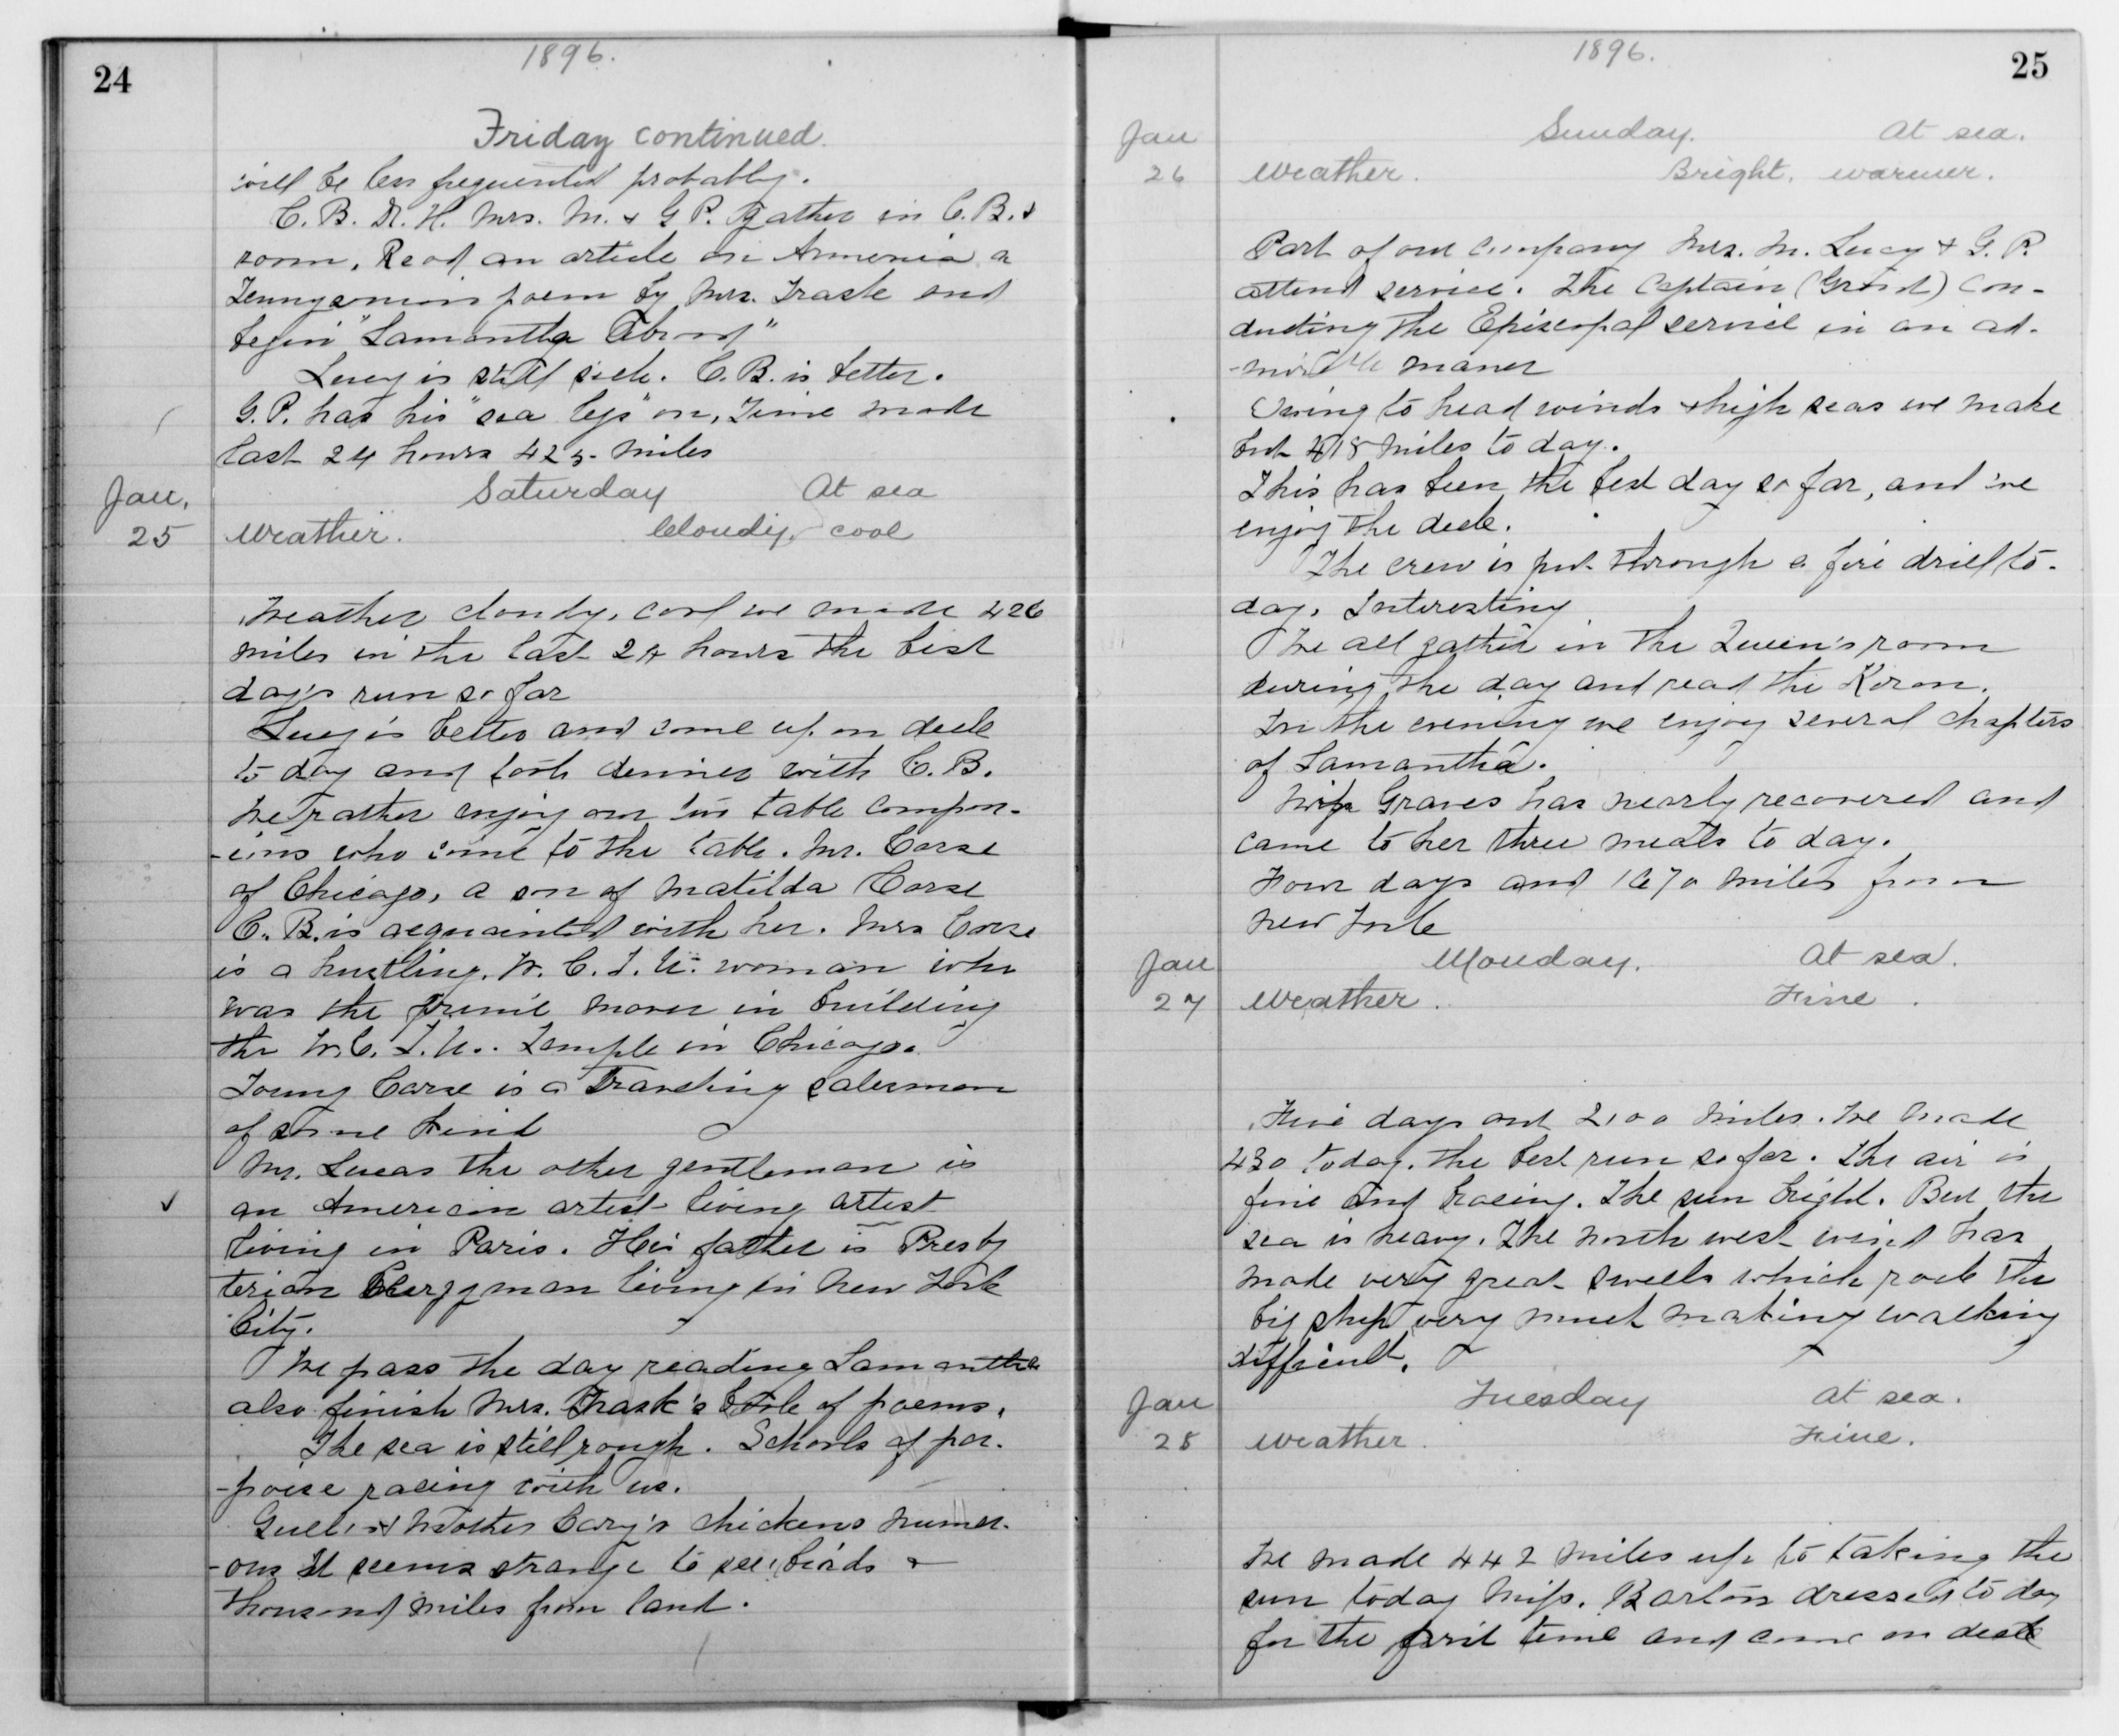 24
1896.
Friday continued.
will be less frequented probably.
C. B. Dr. H. Mrs. M. & G P. gather in C. B.s
room. Read an article on Armenia a
Tennysonian poem by Mrs. Trask and
begin "Samantha Abroad"
Lucy is still sick. C. B. is better.
G. P. has his "sea legs" on, Time made
last 24 hours 425 miles
Jan. Saturday At sea
25 Weather. Cloudy, cool
Weather cloudy, cool we made 426
miles in the last 24 hours the best
day's run so far
Lucy is better and come up on deck
to day and took dinner with C. B.
We rather enjoy our two table compan-
-ions who come to the table. Mr. Carse
of Chicago, a son of Matilda Carse
C. B. is acquainted with her. Mrs Carse
is a hustling W. C. T. U. woman who
was the prime mover in building
the W. C. T. U.. Temple in Chicago.
Young Carse is a Traveling salesman
of some kind
Mr. Lucas the other gentleman is
an American artist living artest
living in Paris. His father is Presby
terian Clergyman living in New York
City.
We pass the day reading Samantha
also finish Mrs. Trask's book of poems.
The sea is still rough. Schools of por-
-poise racing with us.
Gulls & Mother Cary's chickens numer-
-ous It seems strange to see birds a
thousand miles from land.
25
1896.
Jan Sunday. At sea.
26 Weather. Bright. warmer.
Part of our company Mrs. M. Lucy & G. P.
attend service. The Captain (Grand) con-
ducting the Episcopal service in an ad-
-mirable maner
Owing to head winds & high seas we make
but 418 miles to day.
This has been the best day so far, and we
enjoy the deck.
The crew is put through a fire drill to-
day. Interesting
We all gather in the Queen's room
during the day and read the Koran.
In the evening we enjoy several chapters
of Samantha.
Miss Graves has nearly recovered and
came to her three meals to day.
Four days and 1670 miles from
New York
Jan Monday. At sea.
27 Weather. Fine.
Five days out 2100 miles. We made
430 today. the best run so far. The air is
fine and bracing. The sun bright. But the
sea is heavy. The north west wind has
made very great swells which rock the
big ship very much making walking
difficult.
Jan Tuesday At sea.
28 Weather. Fine.
We made 442 miles up to taking the
sun today Miss. Barton dressed to day
for the first time and came on deck